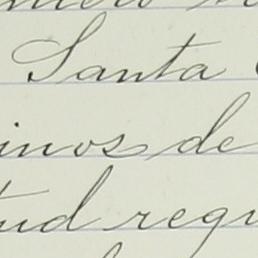 Santa
inos de
tud requ